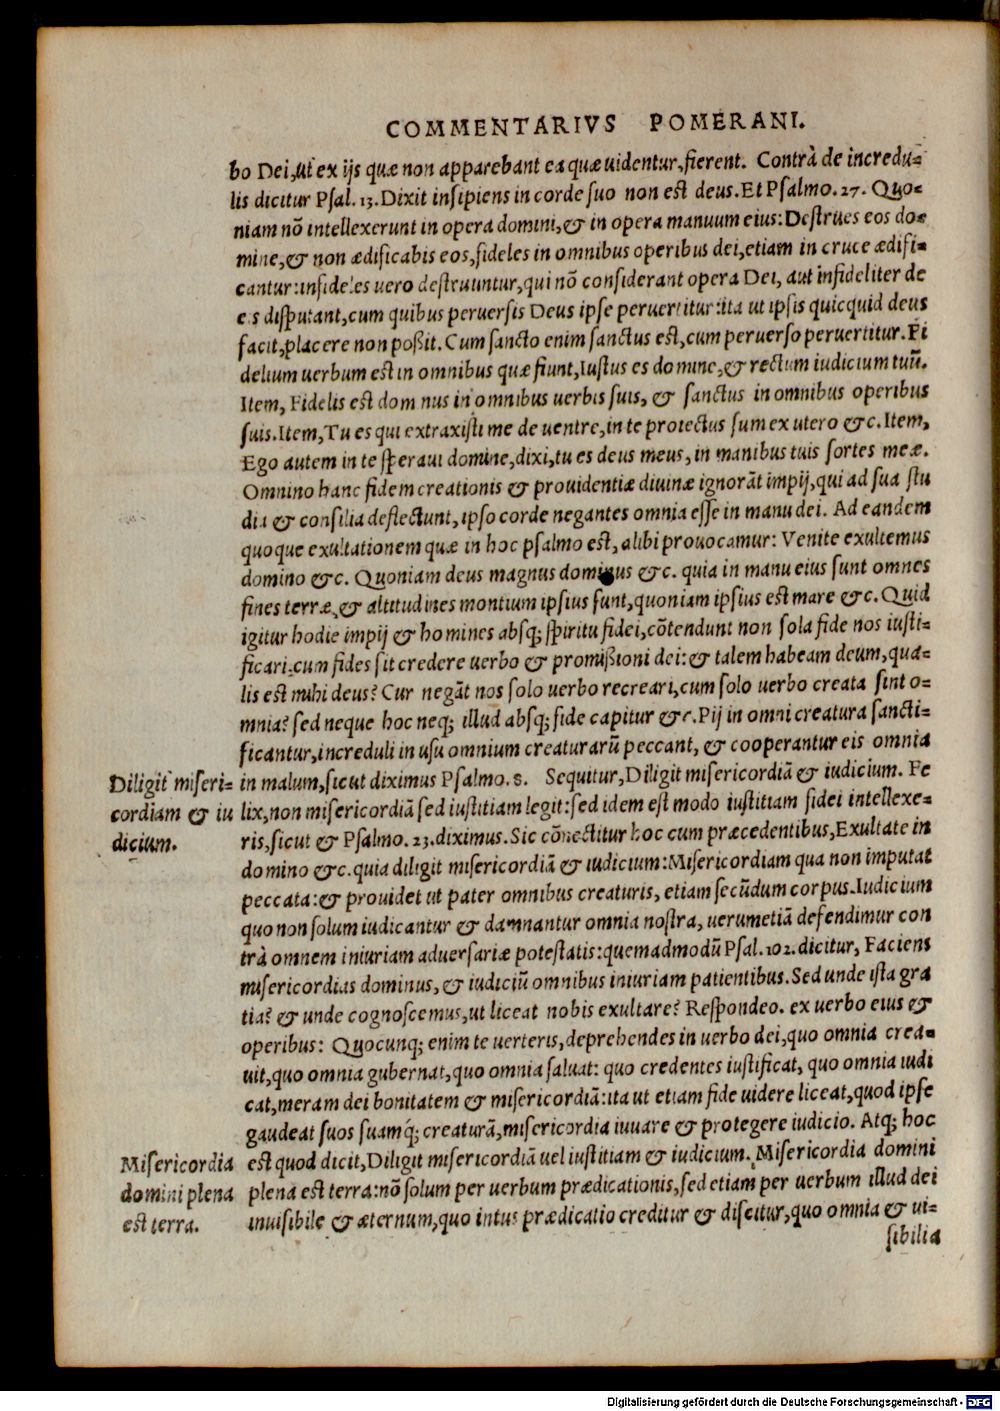 COMMENTARIVS POMERANI.
bo Dei, ut ex ijs quæ non apparebant ea quæ uidentur, fierent. Contrà de incredu-
lis dicitur Psal. 13. Dixit insipiens in corde suo non est deus. Et Psalmo. 27. Quo-
niam nō intellexerunt in opera domini, & in opera manuum eius: Destrues eos do-
mine, & non ædificabis eos, fideles in omnibus operibus dei, etiam in cruce ædifi-
cantur: infideles uero destruuntur, qui nō considerant opera Dei, aut infideliter de
eis disputant, cum quibus peruersis Deus ipse peruertitur: ita ut ipsis quicquid deus
facit, placere non poßit. Cum sancto enim sanctus est, cum peruerso peruertitur. Fi
delium uerbum est in omnibus quæ fiunt, Iustus es domine, & rectum iudicium tuū.
Item, Fidelis est dominus in omnibus uerbis suis, & sanctus in omnibus operibus
suis. Item, Tu es qui extraxisti me de uentre, in te protectus sum ex utero &c. Item,
Ego autem in te speraui domine, dixi, tu es deus meus, in manibus tuis sortes meæ.
Omnino hanc fidem creationis & prouidentiæ diuinæ ignorāt impij, qui ad sua stu
dia & consilia deflectunt, ipso corde negantes omnia esse in manu dei. Ad eandem
quoque exultationem quæ in hoc psalmo est, alibi prouocamur: Venite exultemus
domino &c. Quoniam deus magnus dominus &c. quia in manu eius sunt omnes
fines terræ, & altitudines montium ipsius sunt, quoniam ipsius est mare &c. Quid
igitur hodie impij & homines absq; spiritu fidei, cōtendunt non sola fide nos iusti-
ficari, cum fides sit credere uerbo & promißioni dei: & talem habeam deum, qua-
lis est mihi deus? Cur negāt nos solo uerbo recreari, cum solo uerbo creata sint o-
mnia? sed neque hoc neq; illud absq; fide capitur &c. Pij in omni creatura sancti-
ficantur, increduli in usu omnium creaturarū peccant, & cooperantur eis omnia
in malum, sicut diximus Psalmo. 8. Sequitur, Diligit misericordiā & iudicium. Fe
lix, non misericordiā sed iustitiam legit: sed idem est modo iustitiam fidei intellexe-
ris, sicut & Psalmo. 23. diximus. Sic cōnectitur hoc cum præcedentibus, Exultate in
domino &c. quia diligit misericordiā & iudicium: Misericordiam qua non imputat
peccata: & prouidet ut pater omnibus creaturis, etiam secūdum corpus. Iudicium
quo non solum iudicantur & damnantur omnia nostra, uerumetiā defendimur con
trà omnem iniuriam aduersariæ potestatis: quemadmodū Psal. 102. dicitur, Faciens
misericordias dominus, & iudiciū omnibus iniuriam patientibus. Sed unde ista gra
tia? & unde cognoscemus, ut liceat nobis exultare? Respondeo. ex uerbo eius &
operibus: Quocunq; enim te uerteris, deprehendes in uerbo dei, quo omnia crea-
uit, quo omnia gubernat, quo omnia saluat: quo credentes iustificat, quo omnia iudi
cat, meram dei bonitatem & misericordiā: ita ut etiam fide uidere liceat, quod ipse
gaudeat suos suamq́; creaturā, misericordia iuuare & protegere iudicio. Atq; hoc
est quod dicit, Diligit misericordiā uel iustitiam & iudicium. Misericordia domini
plena est terra: nō solum per uerbum prædicationis, sed etiam per uerbum illud dei
inuisibile & æternum, quo intus prædicatio creditur & discitur, quo omnia & ui-
sibilia
Diligit miseri-
cordiam & iu
dicium.
Misericordia
domini plena
est terra.
Digitalisierung gefördert durch die Deutsche Forschungsgemeinschaft - DFG